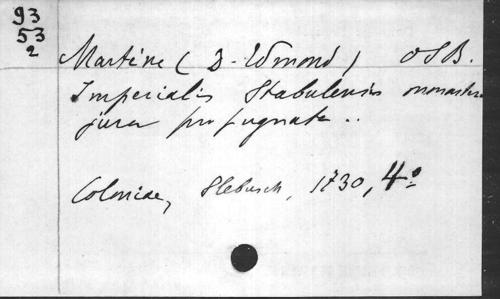 93
53
2
Martène (D. Edmond) OSB.
Imperialis Stabulensis monasterii
jura propugnata ..
Coloniae, Slebusch, 1730, 4º